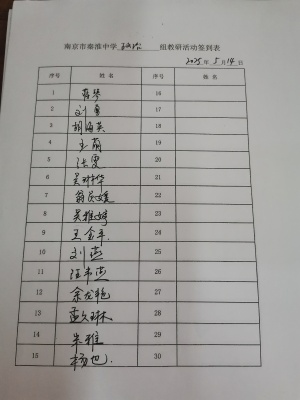 南京市秦淮中学 政治 组教研活动签到表
2025年5月14日
序号 姓名 序号 姓名
1 蒋琴 16
2 刘勇 17
3 胡海英 18
4 王萌 19
5 洪雯 20
6 吴琳华 21
7 翁民媛 22
8 吴雅婷 23
9 王金平 24
10 刘燕 25
11 汪韦燕 26
12 余龙艳 27
13 孟久琳 28
14 朱雅 29
15 杨旭 30